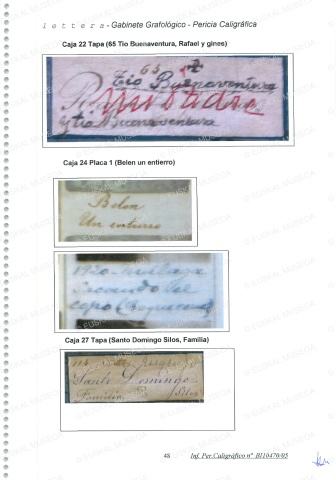 l e t t e r a - Gabinete Grafológico - Pericia Caligráfica
Caja 22 Tapa (65 Tio Buenaventura, Rafael y gines)
65
tio Buenaventura
y tio Buenaventura
Caja 24 Placa 1 (Belen un entierro)
Belen
Un entierro
1920
Sacando del
Caja 27 Tapa (Santo Domingo Silos, Familia)
Santo Domingo
Familia Silos
48 Inf. Per.Caligráfico nº BI10470/05
© EUSKAL MUSEOA